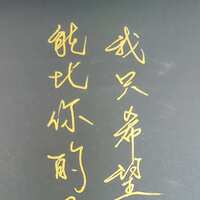 我只希望
能比你的